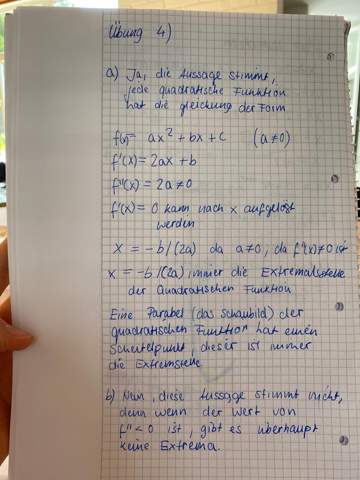 Übung 4)
a) Ja, die Aussage stimmt,
jede quadratische Funktion
hat die gleichung der Form
f(x)= ax² + bx + c (a≠0)
f'(x) = 2ax + b
f''(x) = 2a ≠ 0
f'(x) = 0 kann nach x aufgelöst
werden
x = -b/(2a) da a≠0, da f''(x)≠0 ist
x = -b/(2a) immer die Extremalstelle
der Quadratischen Funktion
Eine Parabel (das Schaubild) der
quadratischen Funktion hat einen
Scheitelpunkt, dieser ist immer
die Extremstelle
b) Nein, diese Aussage stimmt nicht,
denn wenn der Wert von
f'' < 0 ist, gibt es überhaupt
keine Extrema.